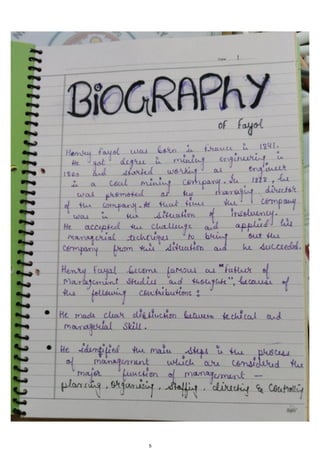 1
BIOGRAPHY
OF Fayol
Henry Fayol was born in France in 1841.
He got degree in mining engineering in
1860 and started working as engineer
in a coal mining company. In 1888, he
was promoted as the managing director
of the company. At that time the company
was in the situation of insolvency.
He accepted the challenge and applied his
managerial techniques to bring out the
company from this situation and he succeeded.
Henry Fayol become famous as "Father of
Management studies and thoughts", because of
the following contributions :
• He made clear distinction between techical and
managerial skill.
• He identified the main steps in the process
of management which are considered the
major function of management —
planning, organising, staffing, directing & Controlling
5